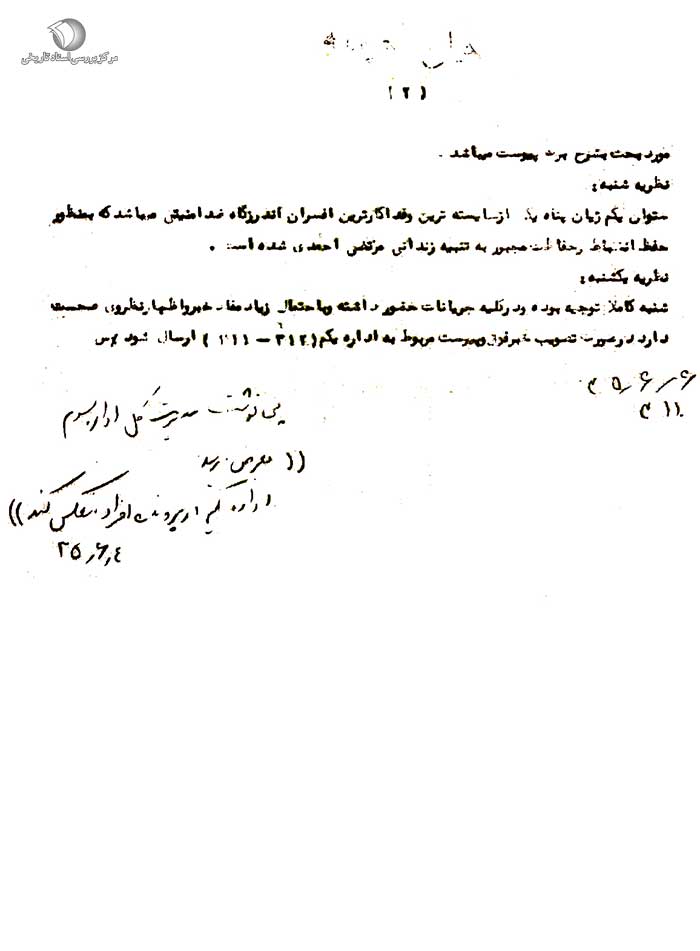 مرکز بررسی اسناد تاریخی
(۲)
مورد بحث بشرح برگ پیوست میباشد .
نظریه شنبه :
ستوان یکم زیان پناه یک ازسایسته ترین وفداکارترین افسران اندرزگاه ضدامنیتی میباشد که بمنظور
حفظ انضباط وحفاظت مجبور به تنبیه زندانی مرتضی احمدی شده است .
نظریه یکشنبه :
شنبه کاملا توجیه بوده ودرکلیه جریانات حضور داشته وباحتمال زیاد مفاد خبرواظهارنظروی صحت
دارد درصورت تصویب خبرفوق وپیوست مربوط به اداره یکم (۳۱۲ – ۳۱۱) ارسال شود
پی نوشت مدیریت کل اداره سوم
((بعرض رسید
اداره یکم در پرونده افراد منعکس کند))
۲۵٫۶٫۴